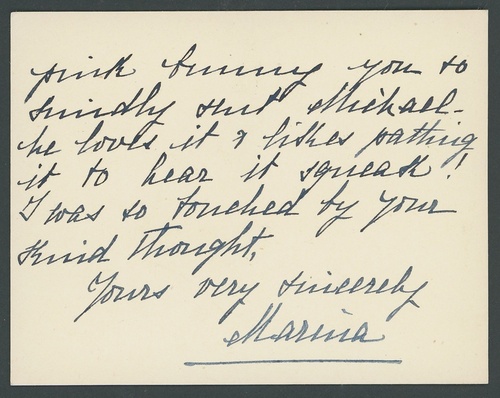 pink bunny you so
kindly sent Michael -
he loves it & likes patting
it to hear it squeak!
I was so touched by your
kind thought,
Yours very sincerely
Marina